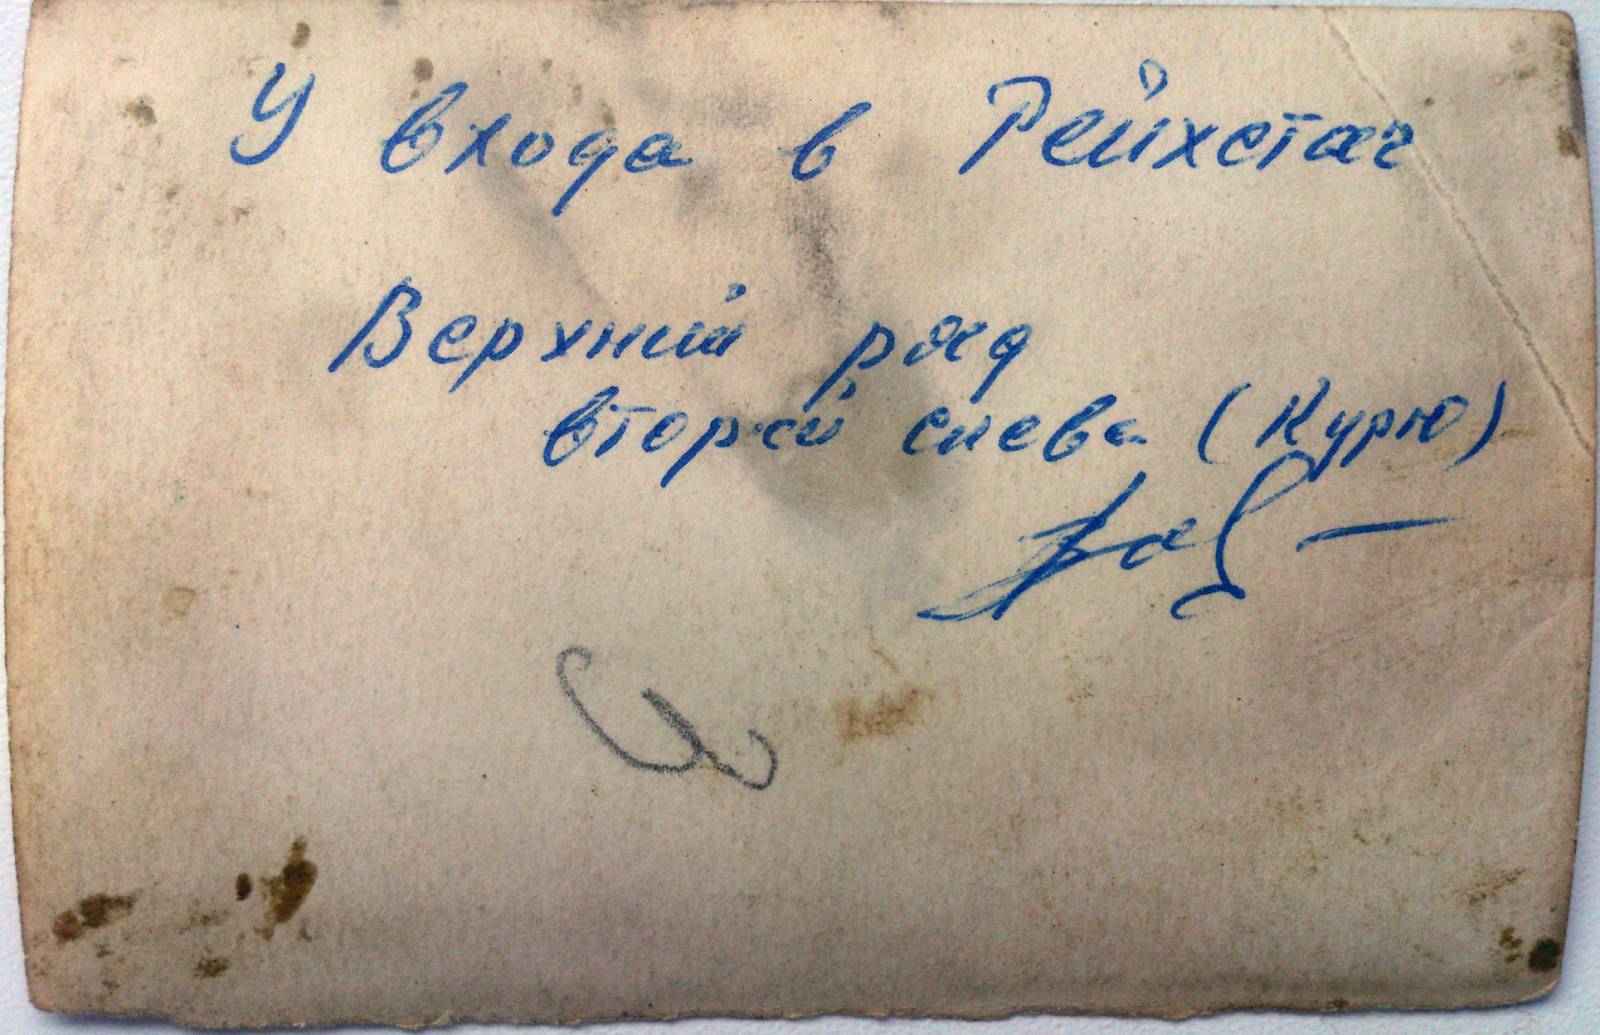 У входа в Рейхстаг
Верхний ряд
второй слева (Курю)